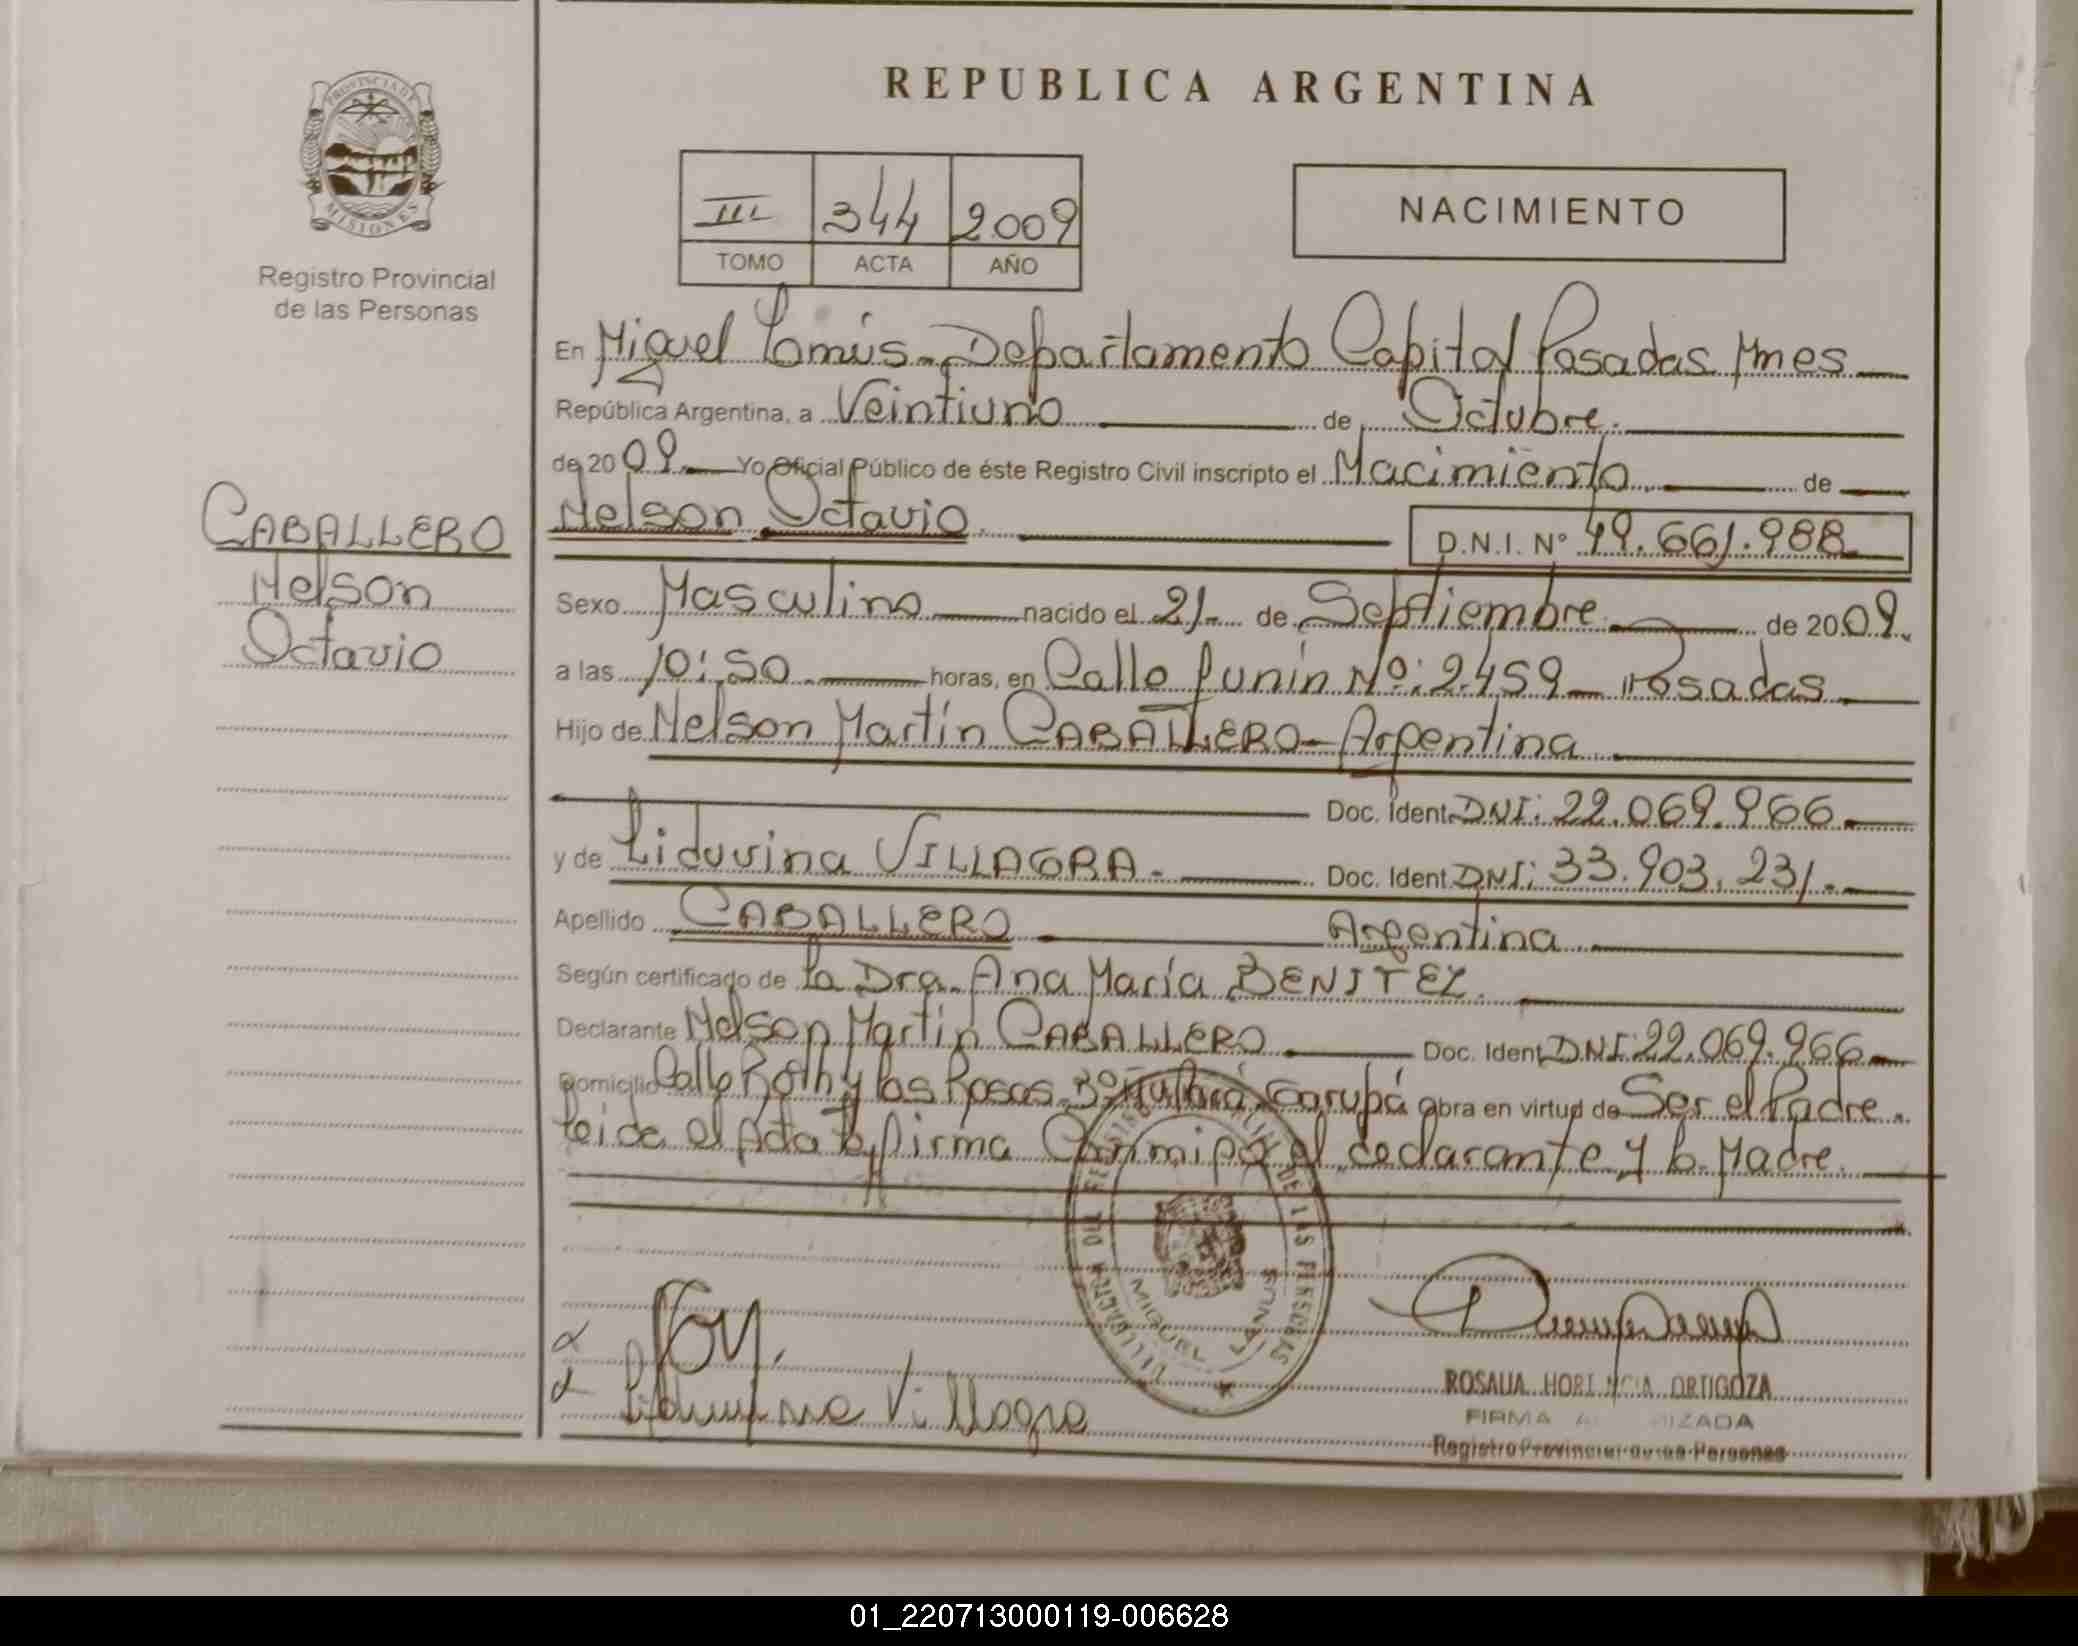 REPUBLICA ARGENTINA
PROVINCIA DE
MISIONES
Registro Provincial
de las Personas
III 344 2009
TOMO ACTA AÑO
NACIMIENTO
En Miguel Lanús - Departamento Capital Posadas Mnes
República Argentina, a Veintiuno de Octubre.
de 2009. Yo Oficial Público de éste Registro Civil inscripto el Nacimiento de
CABALLERO
Nelson
Octavio
Nelson Octavio. D.N.I. Nº 49.661.988
Sexo Masculino nacido el 21. de Septiembre de 2009.
a las 10:50 horas, en Calle Junín Nº: 2.459 - Posadas
Hijo de Nelson Martín CABALLERO - Argentina
Doc. Ident. DNI: 22.069.966
y de Liduvina VILLAGRA. Doc. Ident. DNI: 33.903.231.
Apellido CABALLERO Argentina
Según certificado de La Dra. Ana María BENITEZ.
Declarante Nelson Martín CABALLERO Doc. Ident. DNI: 22.069.966
Domicilio Calle Roth y las Rosas Bº Garupá obra en virtud de Ser el Padre.
Leida el Acta la firma Conmigo el declarante y la Madre.
DELEGACION DEL REGISTRO DE LAS PERSONAS
MIGUEL LANUS
Villagra
ROSALIA HORTENCIA ORTIGOZA
FIRMA AUTORIZADA
Registro Provincial de las Personas
01_220713000119-006628